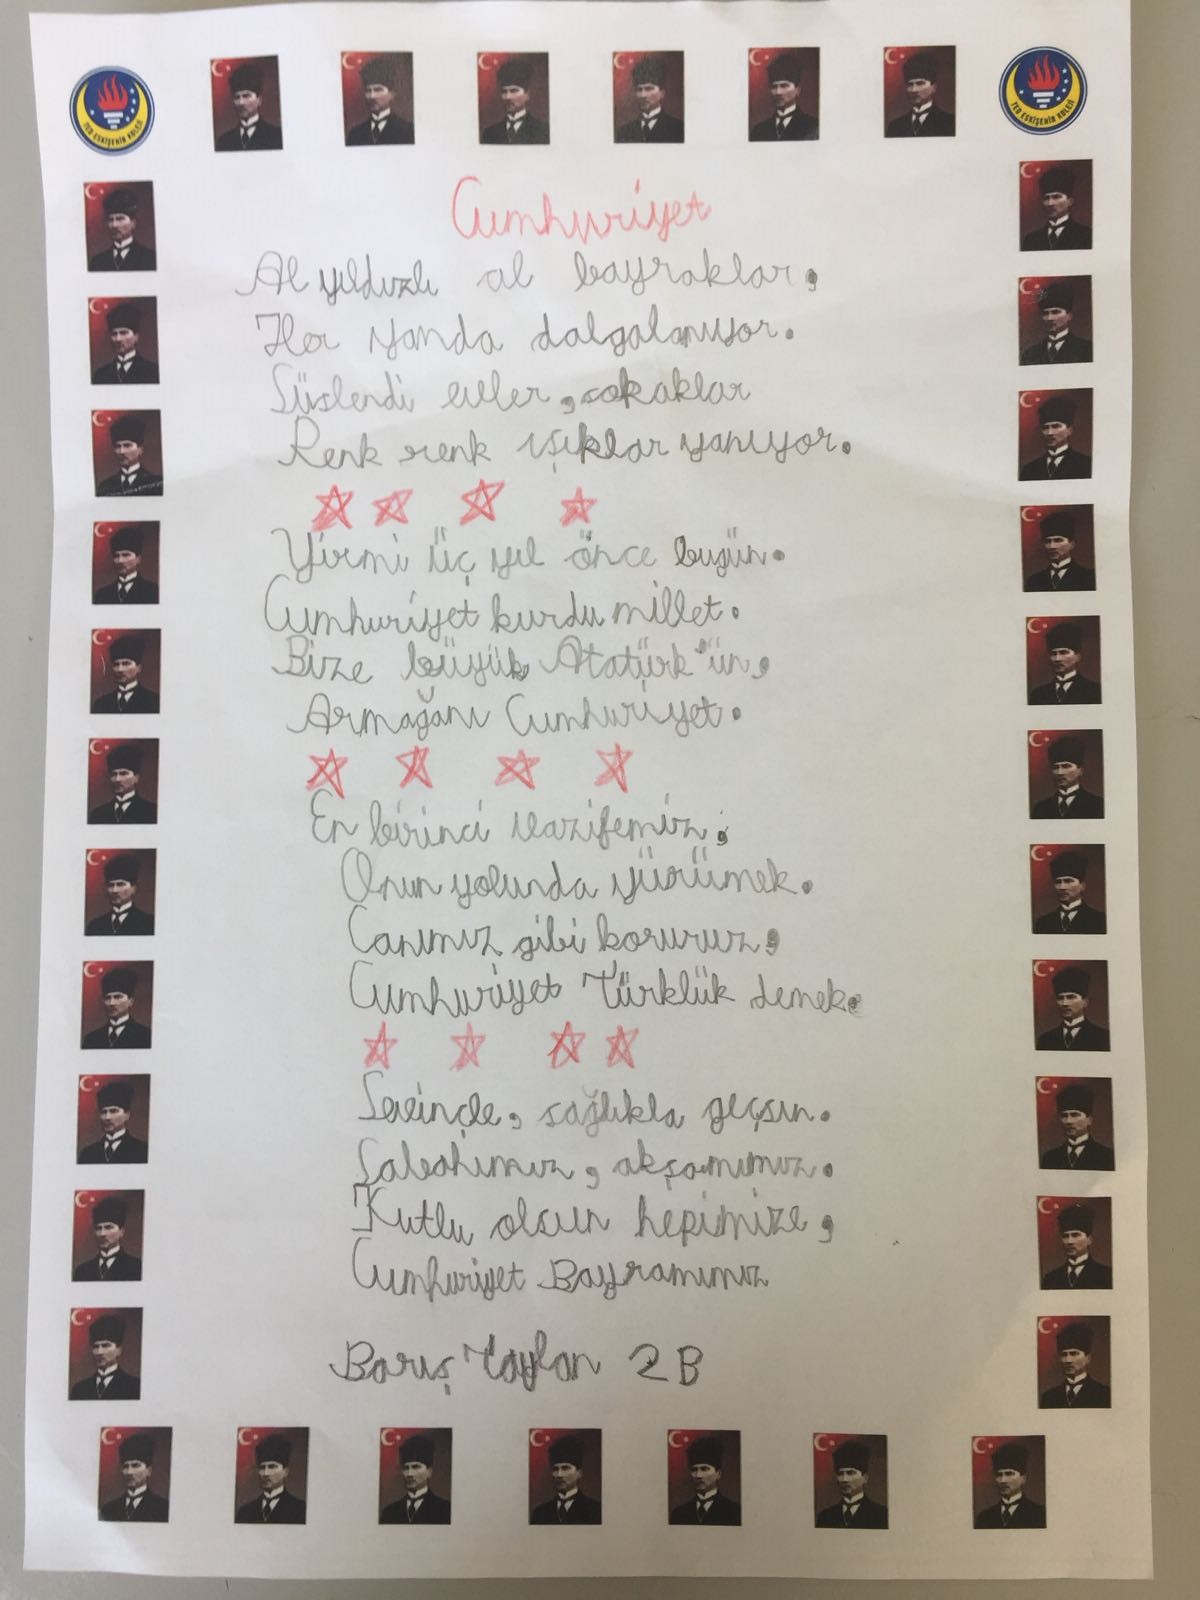 TED ESKİŞEHİR KOLEJİ
TED ESKİŞEHİR KOLEJİ
Cumhuriyet
Al yıldızlı al bayraklar,
Her yanda dalgalanıyor.
Süslendi evler, sokaklar
Renk renk ışıklar yanıyor.
Yirmi üç yıl önce bugün.
Cumhuriyet kurdu millet.
Bize büyük Atatürk'ün,
Armağanı Cumhuriyet.
En birinci vazifemiz,
Onun yolunda yürümek.
Canımız gibi koruruz,
Cumhuriyet Türklük demek.
Sevinçle, sağlıkla geçsin.
Sabahımız, akşamımız.
Kutlu olsun hepimize,
Cumhuriyet Bayramımız
Barış Taylan 2B